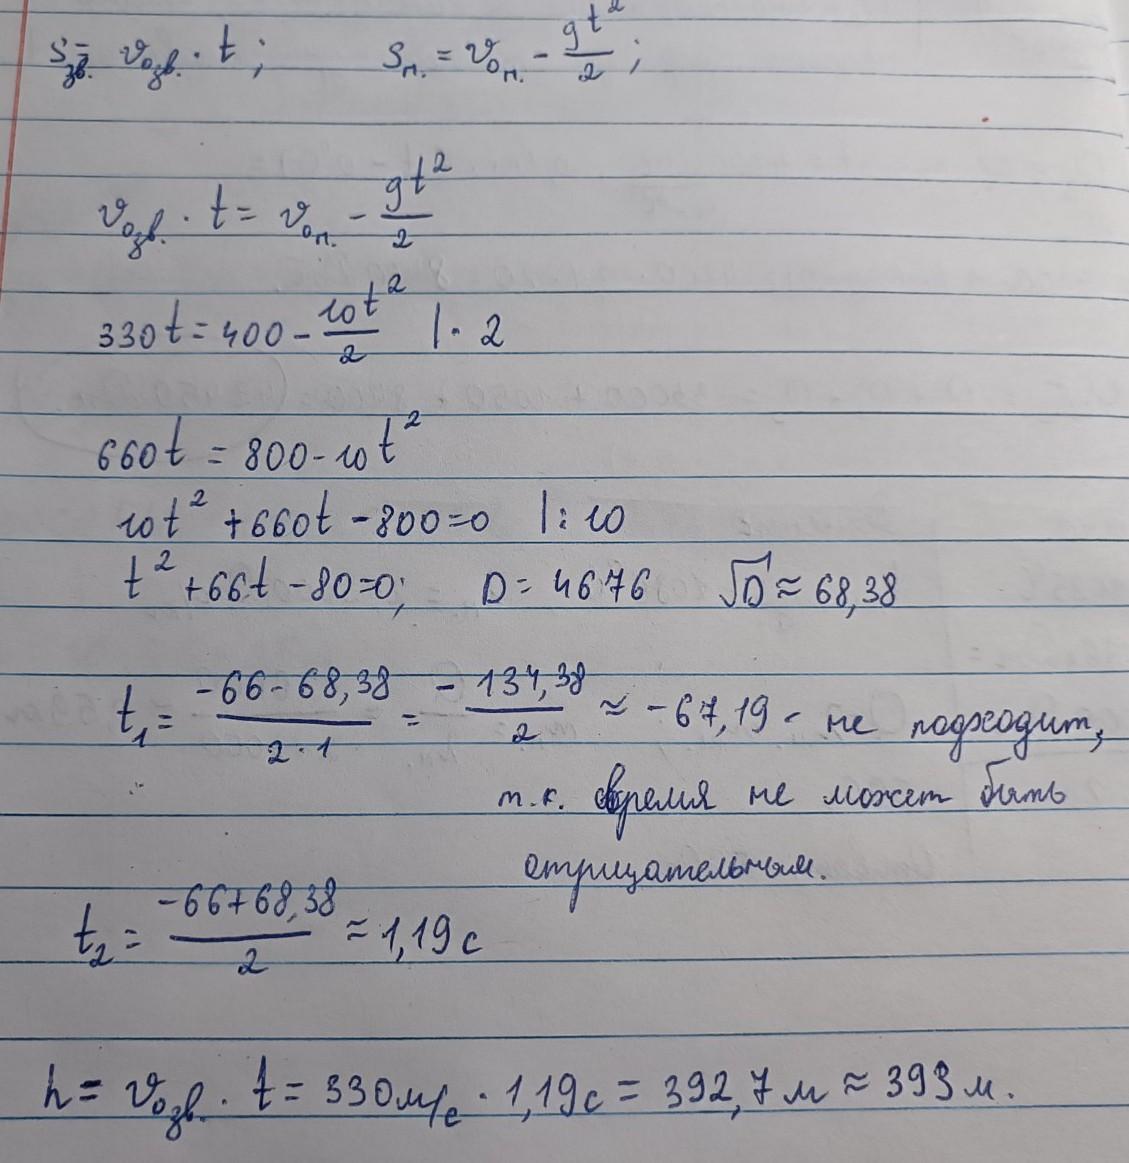 Sзв. = v₀зв. · t ; Sп. = v₀п. - gt²/2 ;
v₀зв. · t = v₀п. - gt²/2
330t = 400 - 10t²/2 | · 2
660t = 800 - 10t²
10t² + 660t - 800 = 0 | : 10
t² + 66t - 80 = 0; D = 4676 √D ≈ 68,38
t₁ = (-66 - 68,38)/(2 · 1) = - 134,38/2 ≈ -67,19 - не подходит,
т.к. время не может быть
отрицательным.
t₂ = (-66 + 68,38)/2 ≈ 1,19 с
h = v₀зв. · t = 330 м/с · 1,19 с = 392,7 м ≈ 393 м.